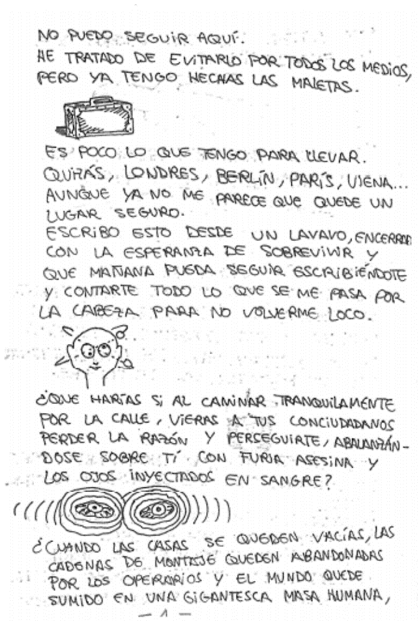 NO PUEDO SEGUIR AQUÍ.
HE TRATADO DE EVITARLO POR TODOS LOS MEDIOS,
PERO YA TENGO HECHAS LAS MALETAS.
ES POCO LO QUE TENGO PARA LLEVAR.
QUIZÁS, LONDRES, BERLÍN, PARÍS, VIENA...
AUNQUE YA NO ME PARECE QUE QUEDE UN
LUGAR SEGURO.
ESCRIBO ESTO DESDE UN LAVAVO, ENCERRADO
CON LA ESPERANZA DE SOBREVIVIR Y
QUE MAÑANA PUEDA SEGUIR ESCRIBIÉNDOTE
Y CONTARTE TODO LO QUE SE ME PASA POR
LA CABEZA PARA NO VOLVERME LOCO.
¿QUE HARÍAS SI AL CAMINAR TRANQUILAMENTE
POR LA CALLE, VIERAS A TUS CONCIUDADANOS
PERDER LA RAZÓN Y PERSEGUIRTE, ABALANZÁN-
DOSE SOBRE TÍ CON FURIA ASESINA Y
LOS OJOS INYECTADOS EN SANGRE?
¿CUANDO LAS CASAS SE QUEDEN VACÍAS, LAS
CADENAS DE MONTAJE QUEDEN ABANDONADAS
POR LOS OPERARIOS Y EL MUNDO QUEDE
SUMIDO EN UNA GIGANTESCA MASA HUMANA,
- 1 -